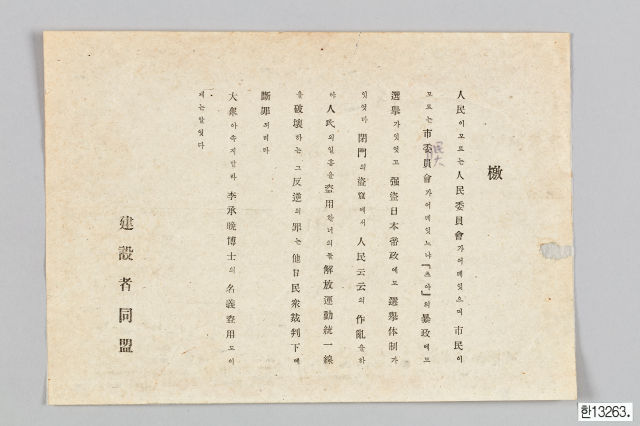 檄
人民이모르는人民委員會가어데잇으며 市民이
모르는 市委員會가어데잇느냐「츠아」의 暴政에도
選擧가잇엇고 强盜日本帝政에도 選擧体制가
잇엇다 閉門의 盜窟에서 人民云云의 作亂을하
야 人民의일홈을 盜用한너의들 解放運動統一線
을 破壞하는 그 反逆의 罪는 他日民衆裁判下에
斷罪되리라
大衆아속지말라 李承晩博士의 名義盜用도이
제는알엇다
建設者同盟
한13263.